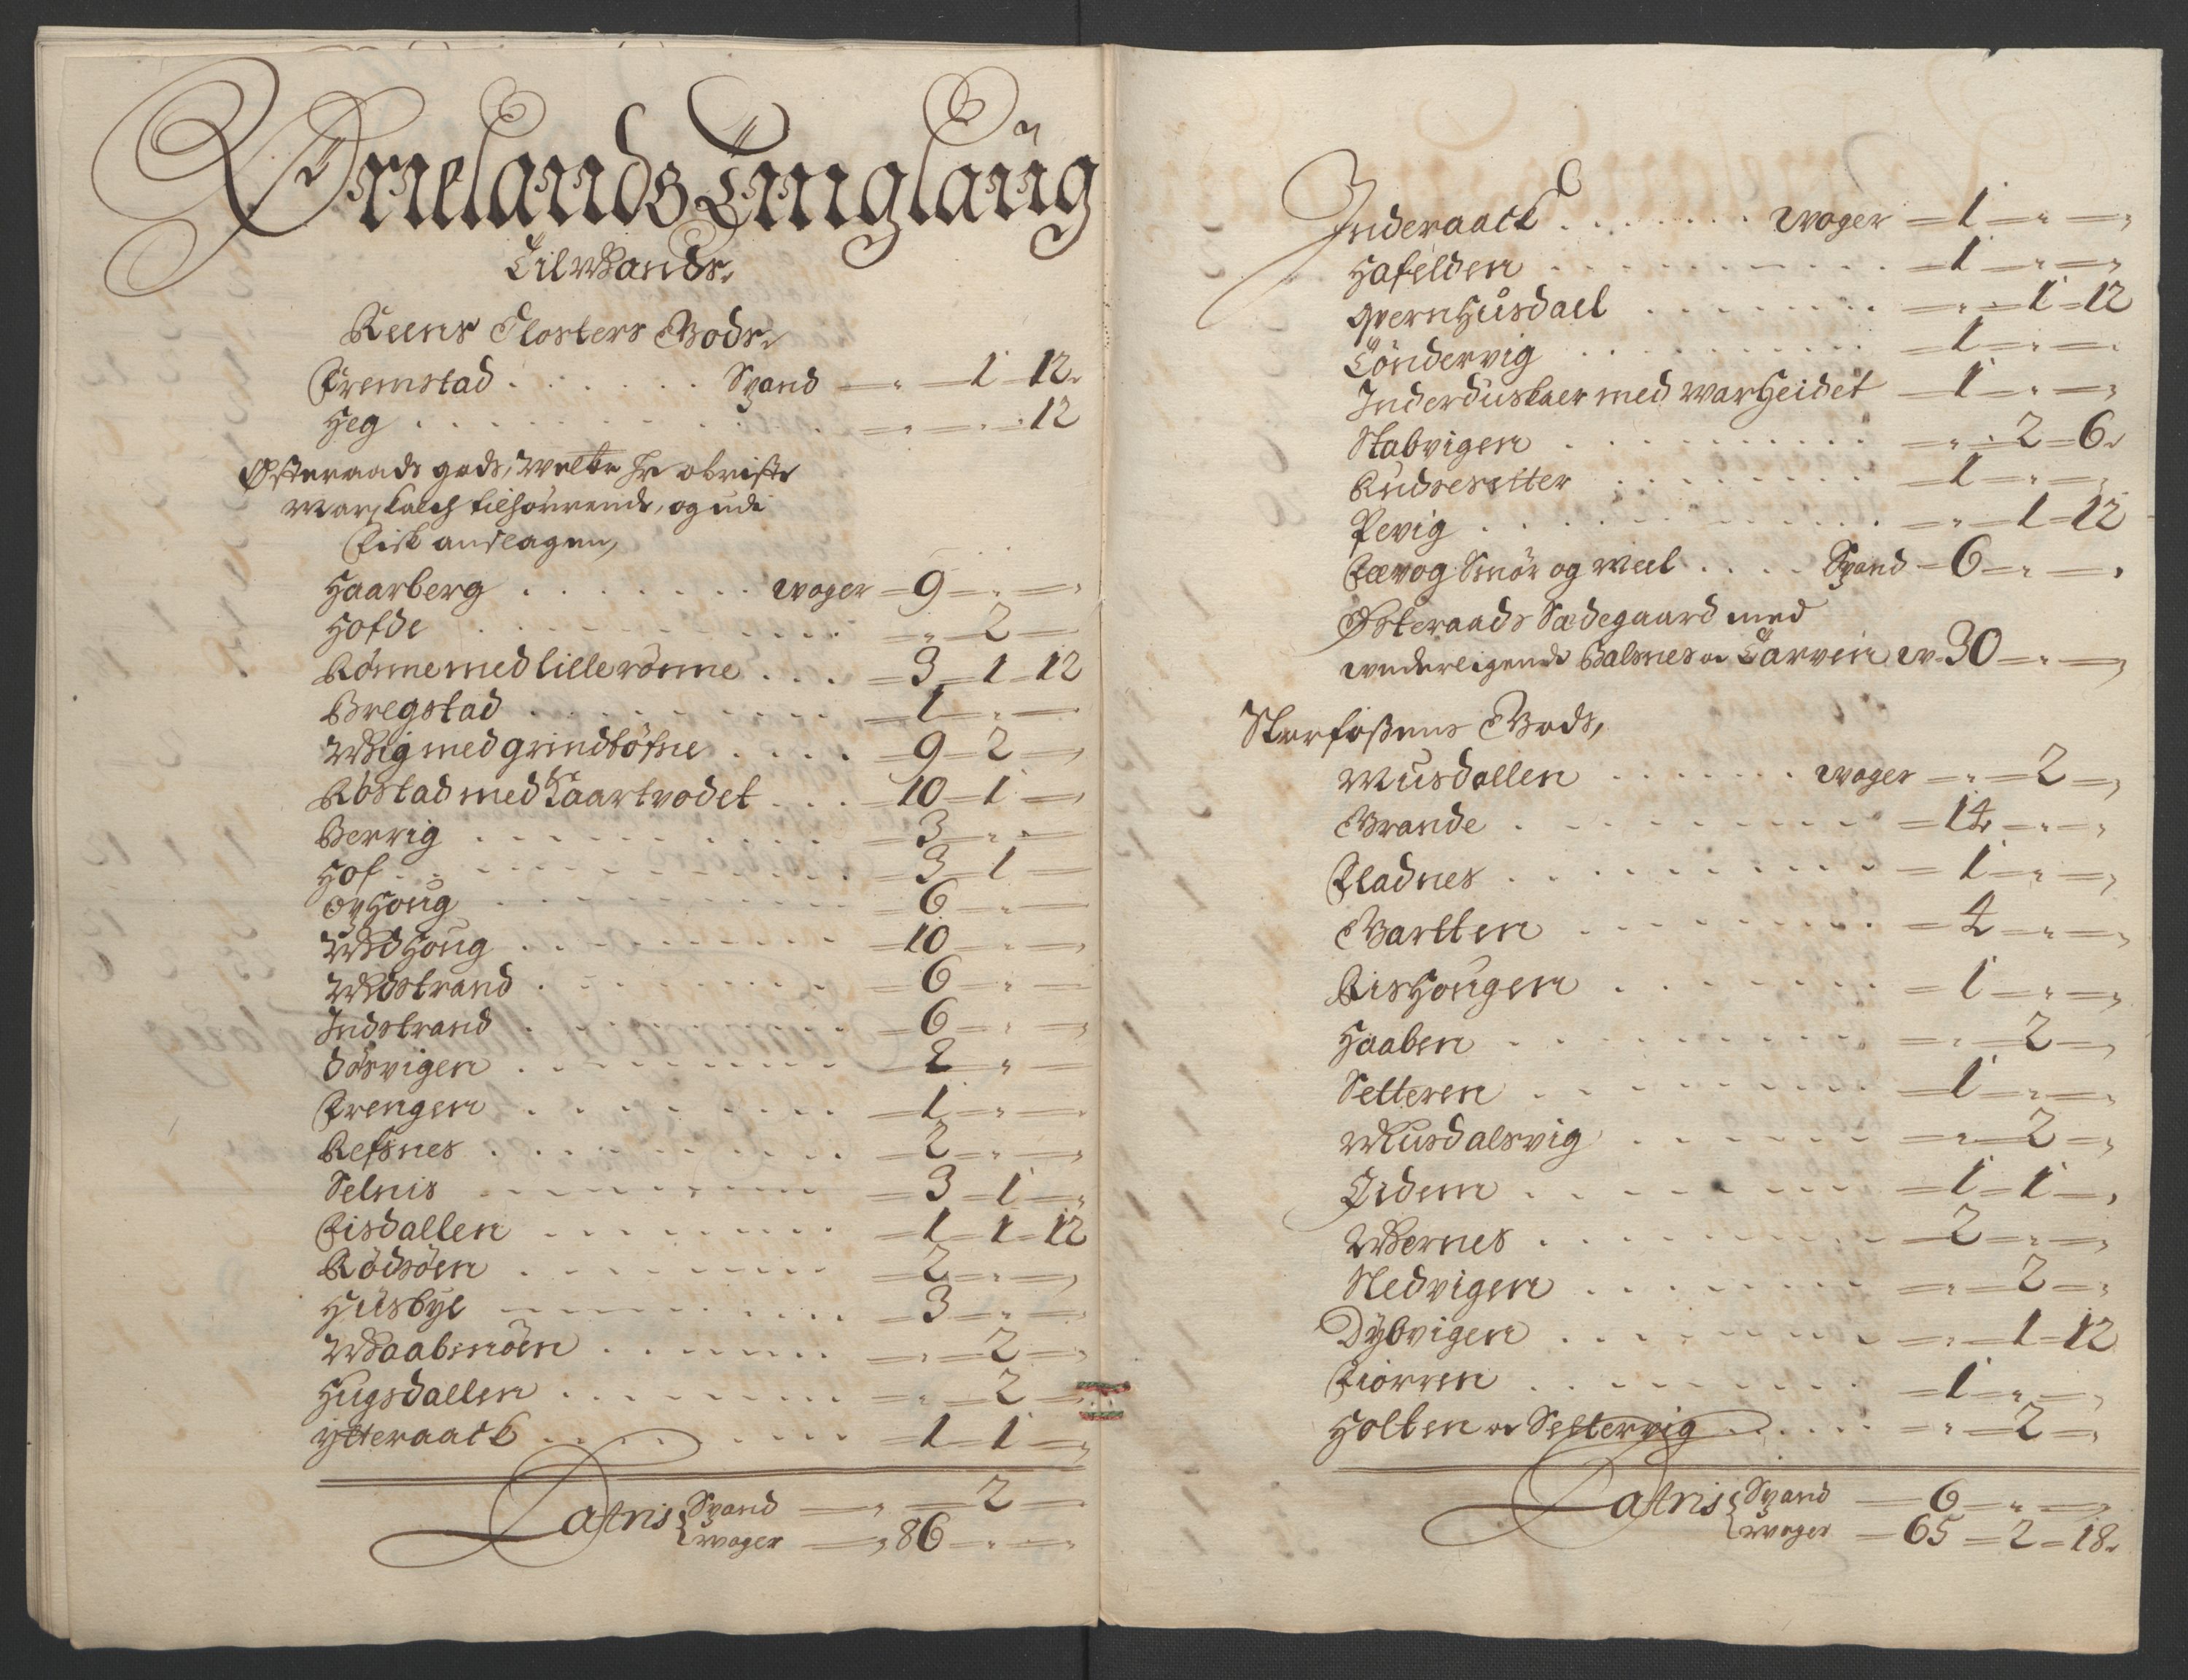 Ørnelands Tinglaug
Til Wands.
Reens Closters Gods.
Fremstad . . . . . . Spand — " — 1 — 12.
Heg . . . . . . . . — " — " — 12
Østeraads gods, Welb. Hr obriste
Marskalch tilhörrende, og udi
Fisk anslagen,
Haarberg . . . . . . woger — 9 — " —
Hofde . . . . . . — " — 2 —
Rönne med lille rönne . . . — 3 — 1 — 12
Bregstad . . . . . . — 1 — " —
Wig med grindböfne . . . . — 9 — 2 —
Röstad med Kaartvodet . . . — 10 — 1 —
Berrig . . . . . . — 3 — " —
Hof . . . . . . — 3 — 1 —
Ophoug . . . . . . — 6 — " —
Wdhoug . . . . . . — 10 — " —
Wdstrand . . . . . . — 6 — " —
Indstrand . . . . . . — 6 — " —
Dösvigen . . . . . . — 2 — " —
Frengen . . . . . . — 1 — " —
Refsnes . . . . . . — 2 — " —
Selnis . . . . . . — 3 — 1 —
Fisdallen . . . . . . — 1 — 1 — 12
Rödsöen . . . . . . — 2 — " —
Husbye . . . . . . — 3 — " —
Waabnöen . . . . . . — " — 2 —
Hugsdallen . . . . . . — " — 2 —
ytteraack . . . . . . — 1 — 1 —
Latris { Spand — " — 2 —
woger — 86 — " —
Inderaack . . . . . . woger — 1 — " —
Hafelden . . . . . . — 1 — " —
Qvernhusdael . . . . . . — " — 1 — 12
Töndervig . . . . . . — 1 — " —
Inderduskaer med warheidet — 1 — " —
Stabvigen . . . . . . — " — 2 — 6.
Rudsesetter . . . . . . — 1 — " —
Pevig . . . . . . — " — 1 — 12
Fævog Smör og Meel . . . . Spand — 6 — " —
Østeraads Sædegaard med
underligende Balsnes oc Tarven w. 30 — " —
Storfoßens Gods,
Musdallen . . . . . . woger — " — 2 —
Grande . . . . . . — 14 — " —
Fladnes . . . . . . — 1 — " —
Gartten . . . . . . — 4 — " —
Rishougen . . . . . . — 1 — " —
Haaben . . . . . . — " — 2 —
Setteren . . . . . . — 1 — " —
Musdalsvig . . . . . . — " — 2 —
Eidem . . . . . . — 1 — 1 —
Wernes . . . . . . — 2 — " —
Nedvigen . . . . . . — " — 2 —
Dybvigen . . . . . . — " — 1 — 12
Fiorren . . . . . . — 1 — " —
Holten oc Settervig . . . . — " — 2 —
Latris { Spand — 6 — " —
woger — 65 — 2 — 18.